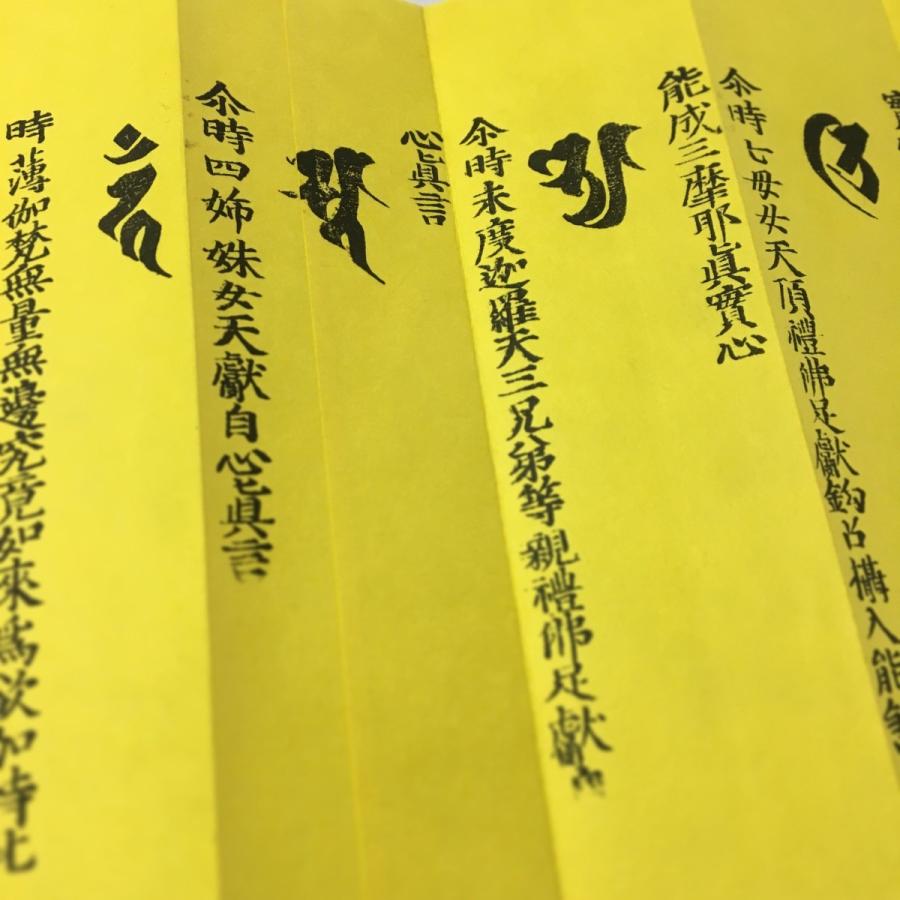 尒時七母女天頂禮佛足獻鉤召攝入能
能成三摩耶眞實心
尒時末度迦羅天三兄弟等親禮佛足獻自
心眞言
尒時四姉妹女天獻自心眞言
時薄伽梵無量無邊究竟如來爲欲加持此